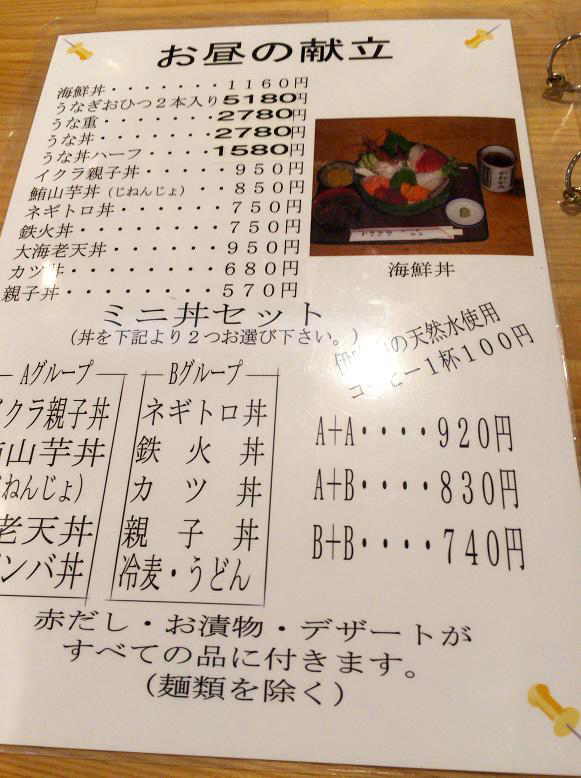 お昼の献立
海鮮丼・・・・・・・１１６０円
うなぎおひつ２本入り5180円
うな重・・・・・・・2780円
うな丼・・・・・・・2780円
うな丼ハーフ・・・・1580円
イクラ親子丼・・・・・９５０円
鮪山芋丼（じねんじょ）・・８５０円
ネギトロ丼・・・・・・７５０円
鉄火丼・・・・・・・・７５０円
大海老天丼・・・・・・９５０円
カツ丼・・・・・・・・６８０円
親子丼・・・・・・・・５７０円
海鮮丼
ミニ丼セット
（丼を下記より２つお選び下さい。）
の天然水使用
コーヒー１杯１００円
Aグループ
イクラ親子丼
鮪山芋丼
（じねんじょ）
老天丼
ンバ丼
Bグループ
ネギトロ丼
鉄火丼
カツ丼
親子丼
冷麦・うどん
A＋A・・・・９２０円
A＋B・・・・８３０円
B＋B・・・・７４０円
赤だし・お漬物・デザートが
すべての品に付きます。
（麺類を除く）